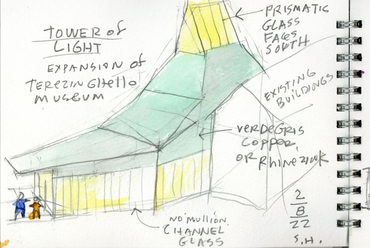 TOWER OF
LIGHT
EXPANSION OF
TEREZIN GHETTO
MUSEUM
PRISMATIC
GLASS
FACES
SOUTH
EXISTING
BUILDINGS
VERDEGRIS
COPPER
OR RHINEZINK
NO MULLION
CHANNEL
GLASS
2
8
22
S.H.